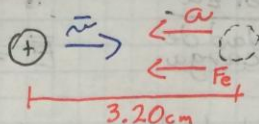 + v a
Fe
3.20cm